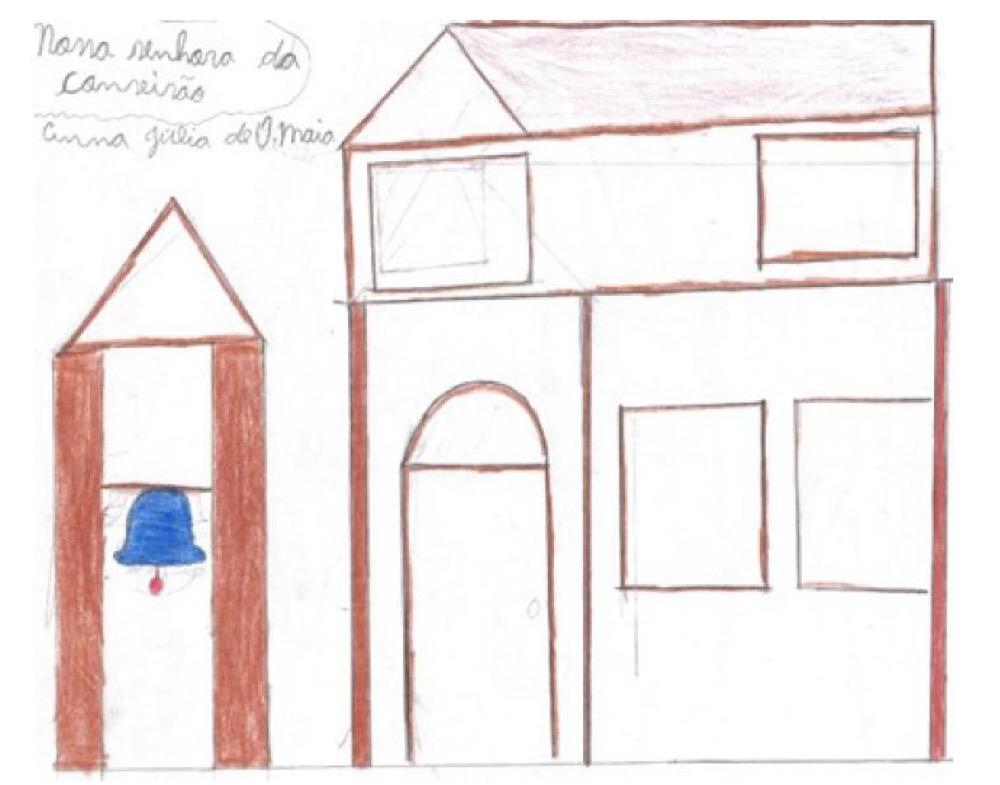 Nossa senhora da
conseisão
Anna Júlia de O. Maia